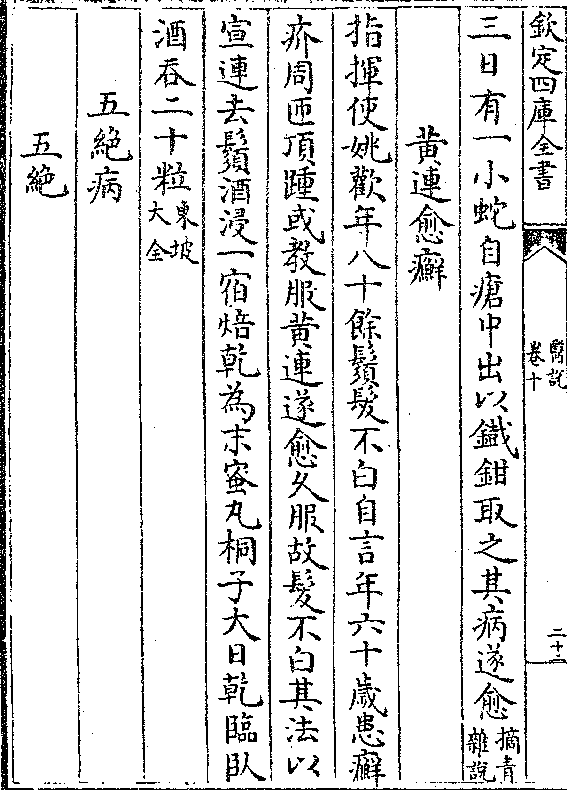 欽定四庫全書
醫說
卷十
二十二
三日有一小蛇自瘡中出以鐵鉗取之其病遂愈摘青雜說
黄連愈癬
指揮使姚歡年八十餘鬚髮不白自言年六十歲患癬
疥周匝頂踵或教服黄連遂愈久服故髮不白其法以
宣連去鬚酒浸一宿焙乾為末蜜丸桐子大日乾臨臥
酒吞二十粒東坡大全
五絶病
五絶